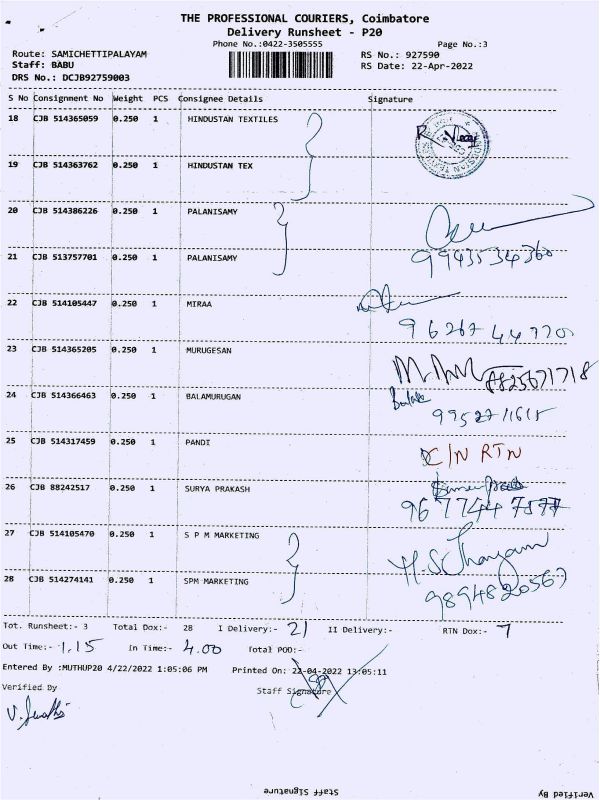 THE PROFESSIONAL COURIERS, Coimbatore
Delivery Runsheet - P20
Phone No.:0422-3505555 Page No.:3
Route: SAMICHETTIPALAYAM RS No.: 927590
Staff: BABU RS Date: 22-Apr-2022
DRS No.: DCJB92759003
S No Consignment No Weight PCS Consignee Details Signature
18 CJB 514365059 0.250 1 HINDUSTAN TEXTILES
19 CJB 514363762 0.250 1 HINDUSTAN TEX
20 CJB 514386226 0.250 1 PALANISAMY
21 CJB 513757701 0.250 1 PALANISAMY 9943534360
22 CJB 514105447 0.250 1 MIRAA
96267 44770
23 CJB 514365205 0.250 1 MURUGESAN 8825671718
24 CJB 514366463 0.250 1 BALAMURUGAN Bala
9952711615
25 CJB 514317459 0.250 1 PANDI C/N RTN
26 CJB 88242517 0.250 1 SURYA PRAKASH
967744 7577
27 CJB 514105470 0.250 1 S P M MARKETING
28 CJB 514274141 0.250 1 SPM MARKETING 9894820567
Tot. Runsheet:- 3 Total Dox:- 28 I Delivery:- 21 II Delivery:- RTN Dox:- 7
Out Time:- 1.15 In Time:- 4.00 Total POD:-
Entered By :MUTHUP20 4/22/2022 1:05:06 PM Printed On: 22-04-2022 13:05:11
Verified By Staff Signature
Staff Signature Verified By